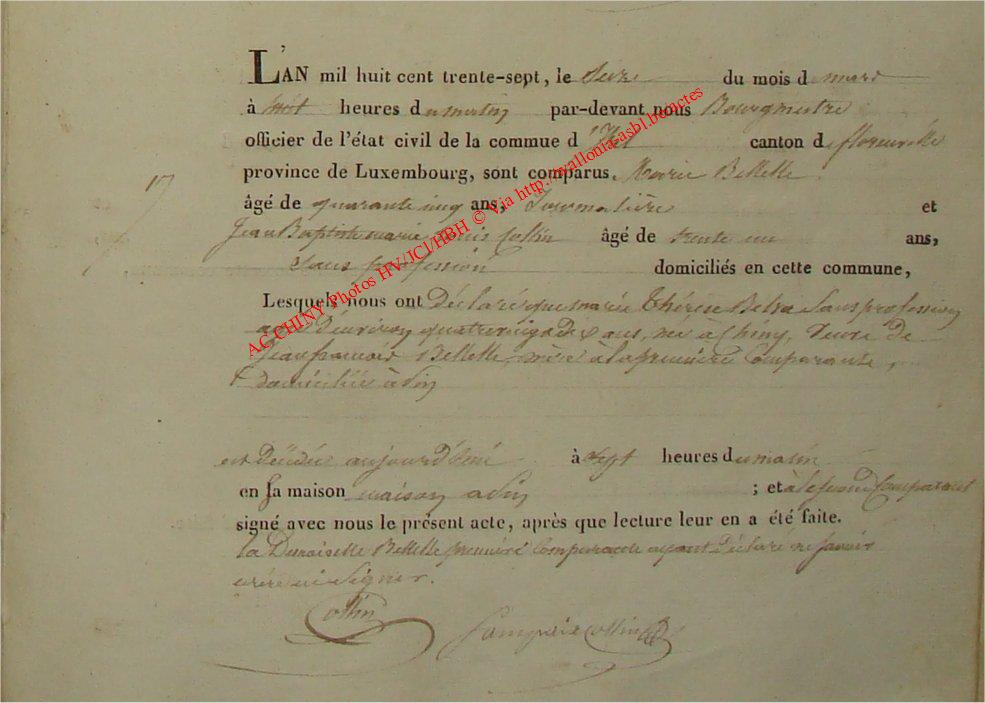 L'AN mil huit cent trente-sept, le seize du mois d mars
à huit heures du matin par-devant nous Bourgmestre
officier de l'état civil de la commue d canton de florenville
province de Luxembourg, sont comparus, Marie Bellette
17
âgé de quarante cinq ans, Journalière et
Jean Baptiste marie Louis Collin âgé de trente un ans,
Sans profession domiciliés en cette commune,
Lesquels nous ont Déclaré que marie Thérèse Sans profession
d'environ ans, née a Chiny, Veuve de
Jean francois Bellette, mère à la première Comparante,
domiciliée à
est Décédée aujourd'hui à sept heures du matin
en sa maison maison a ; et à le second Comparant
signé avec nous le présent acte, après que lecture leur en a été faite.
la Demoiselle Bellette première Comparante ayant Déclaré ne savoir
écrire ni signer.
Collin
Collin
AC CHINY Photos HV/JCl/HBH © Via http://wallonia-asbl.be/actes